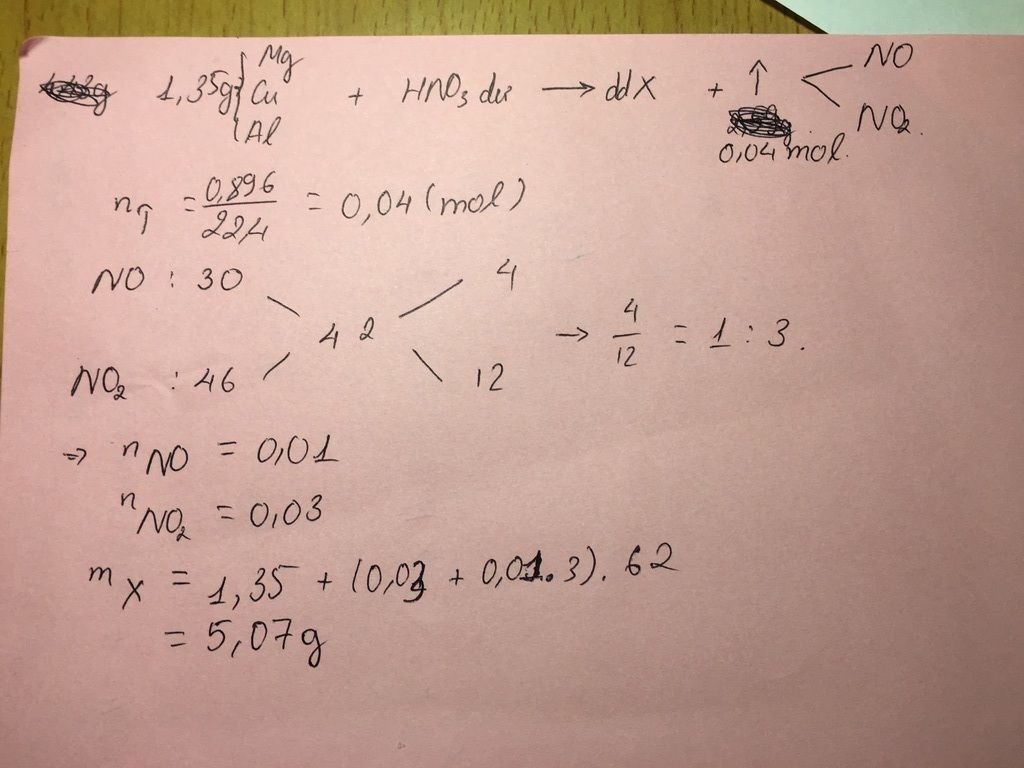 1,35g { Mg Cu Al + HNO₃ dư → ddX + ↑ < NO NO₂.
0,04 mol.
n↑ = 0,896 / 22,4 = 0,04 (mol)
NO : 30 4
42 → 4 / 12 = 1 : 3.
NO₂ : 46 12
⇒ nNO = 0,01
nNO₂ = 0,03
mX = 1,35 + (0,03 + 0,01.3). 62
= 5,07g